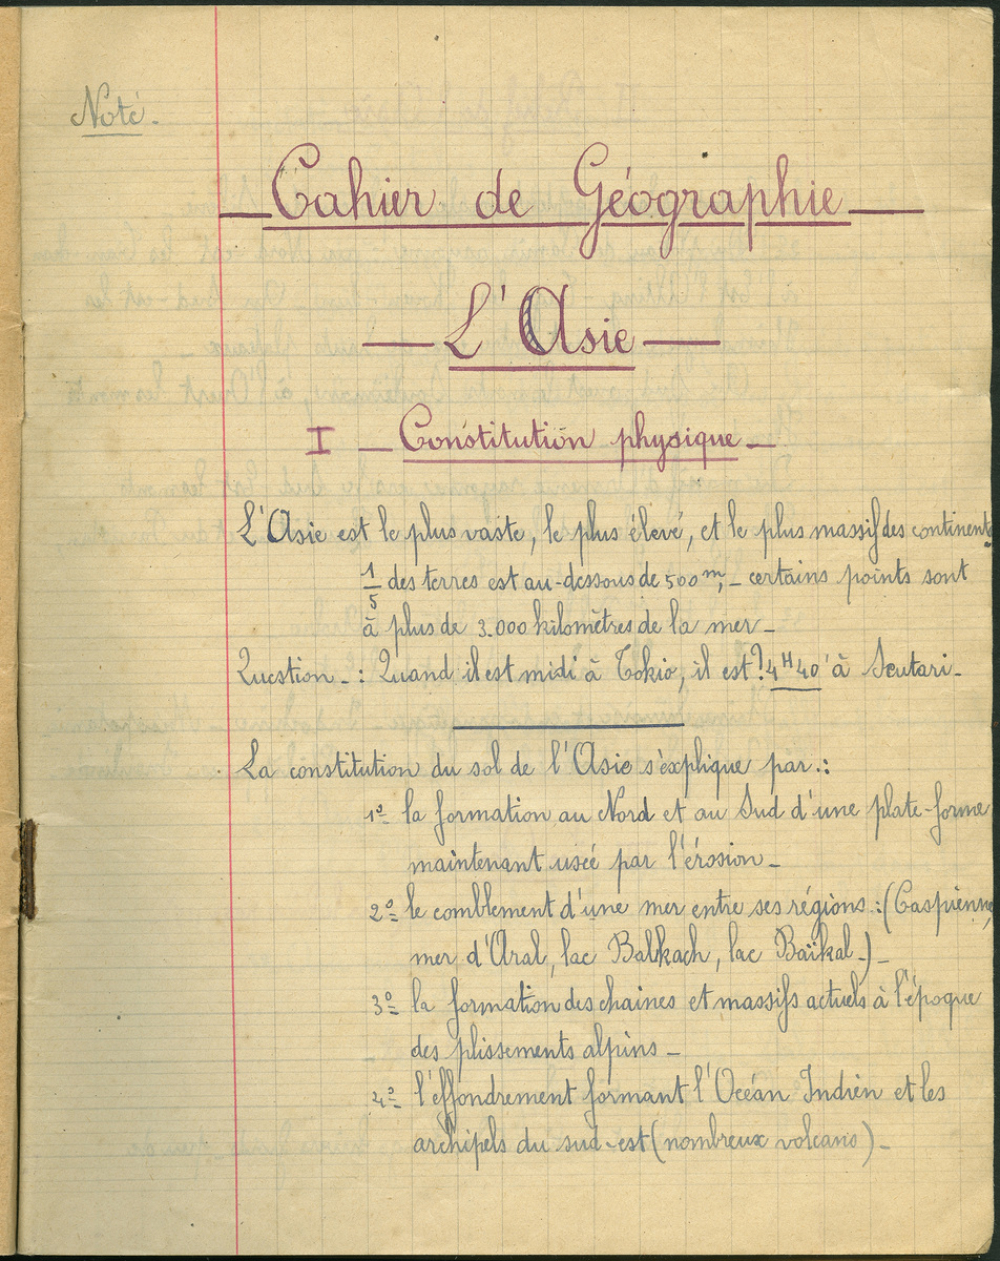 Noté.
— Cahier de Géographie —
— L'Asie —
I — Constitution physique —
L'Asie est le plus vaste, le plus élevé, et le plus massif des continents
1/5 des terres est au-dessous de 500 m, — certains points sont
à plus de 3.000 kilomètres de la mer —
Question - : Quand il est midi à Tokio, il est ? 4H40' à Scutari -
La constitution du sol de l'Asie s'explique par :
1º la formation au Nord et au Sud d'une plate-forme
maintenant usée par l'érosion -
2º le comblement d'une mer entre ses régions : (Caspienne,
mer d'Aral, lac Balkach, lac Baïkal -) -
3º la formation des chaines et massifs actuels à l'époque
des plissements alpins -
4º l'effondrement formant l'Océan Indien et les
archipels du sud-est (nombreux volcans) -